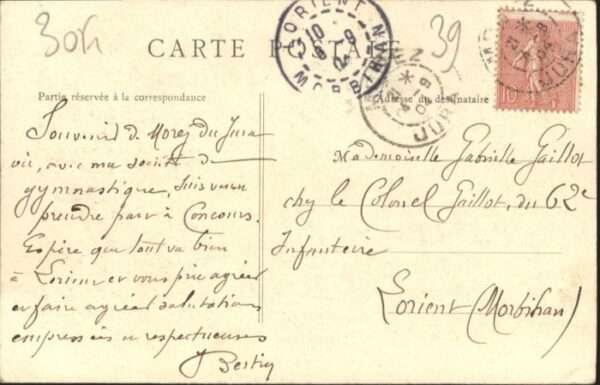 30h
39
CARTE POSTALE
LORIENT
MORBIHAN
JURA
10
Partie réservée à la correspondance
Adresse du destinataire
Souvenir de Morez du Jura
où, avec ma société de
gymnastique, suis venu
prendre part à Concours.
Espère que tout va bien
à Lorient et vous prie agréer
et faire agréer salutations
empressées et respectueuses
Mademoiselle Gabrielle Gaillot
chez le Colonel Gaillot, du 62e
Infanterie
Lorient (Morbihan)